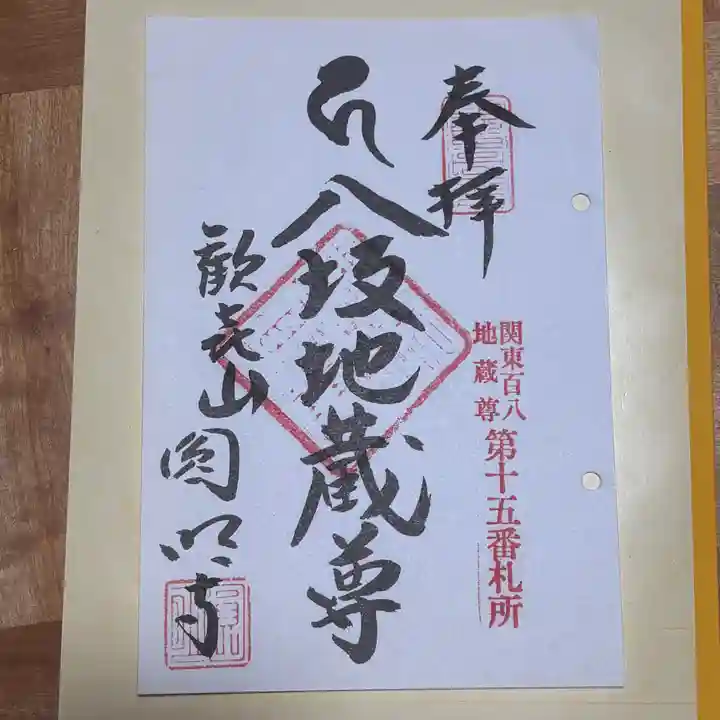 奉拝
関東百八
地蔵尊
第十五番札所
八坂地蔵尊
歓喜山
圓明寺